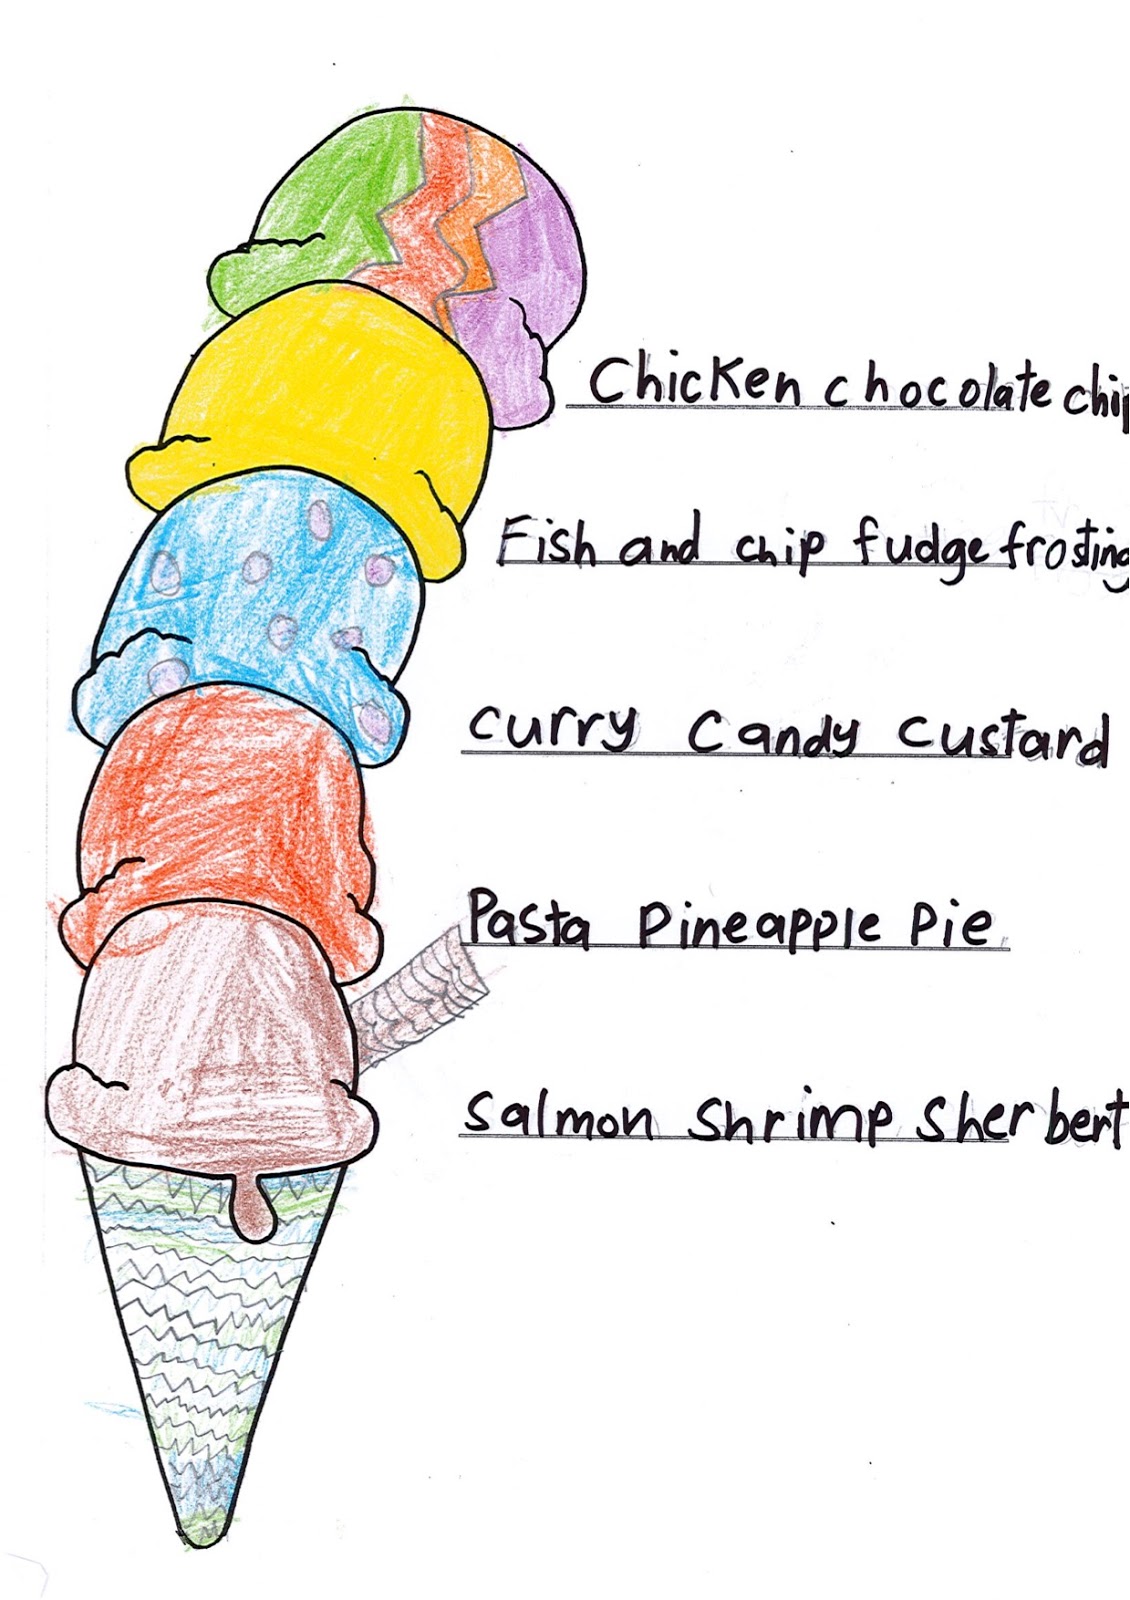 Chicken chocolate chip
Fish and chip fudge frosting
Curry Candy Custard
Pasta Pineapple Pie
Salmon Shrimp Sherbert